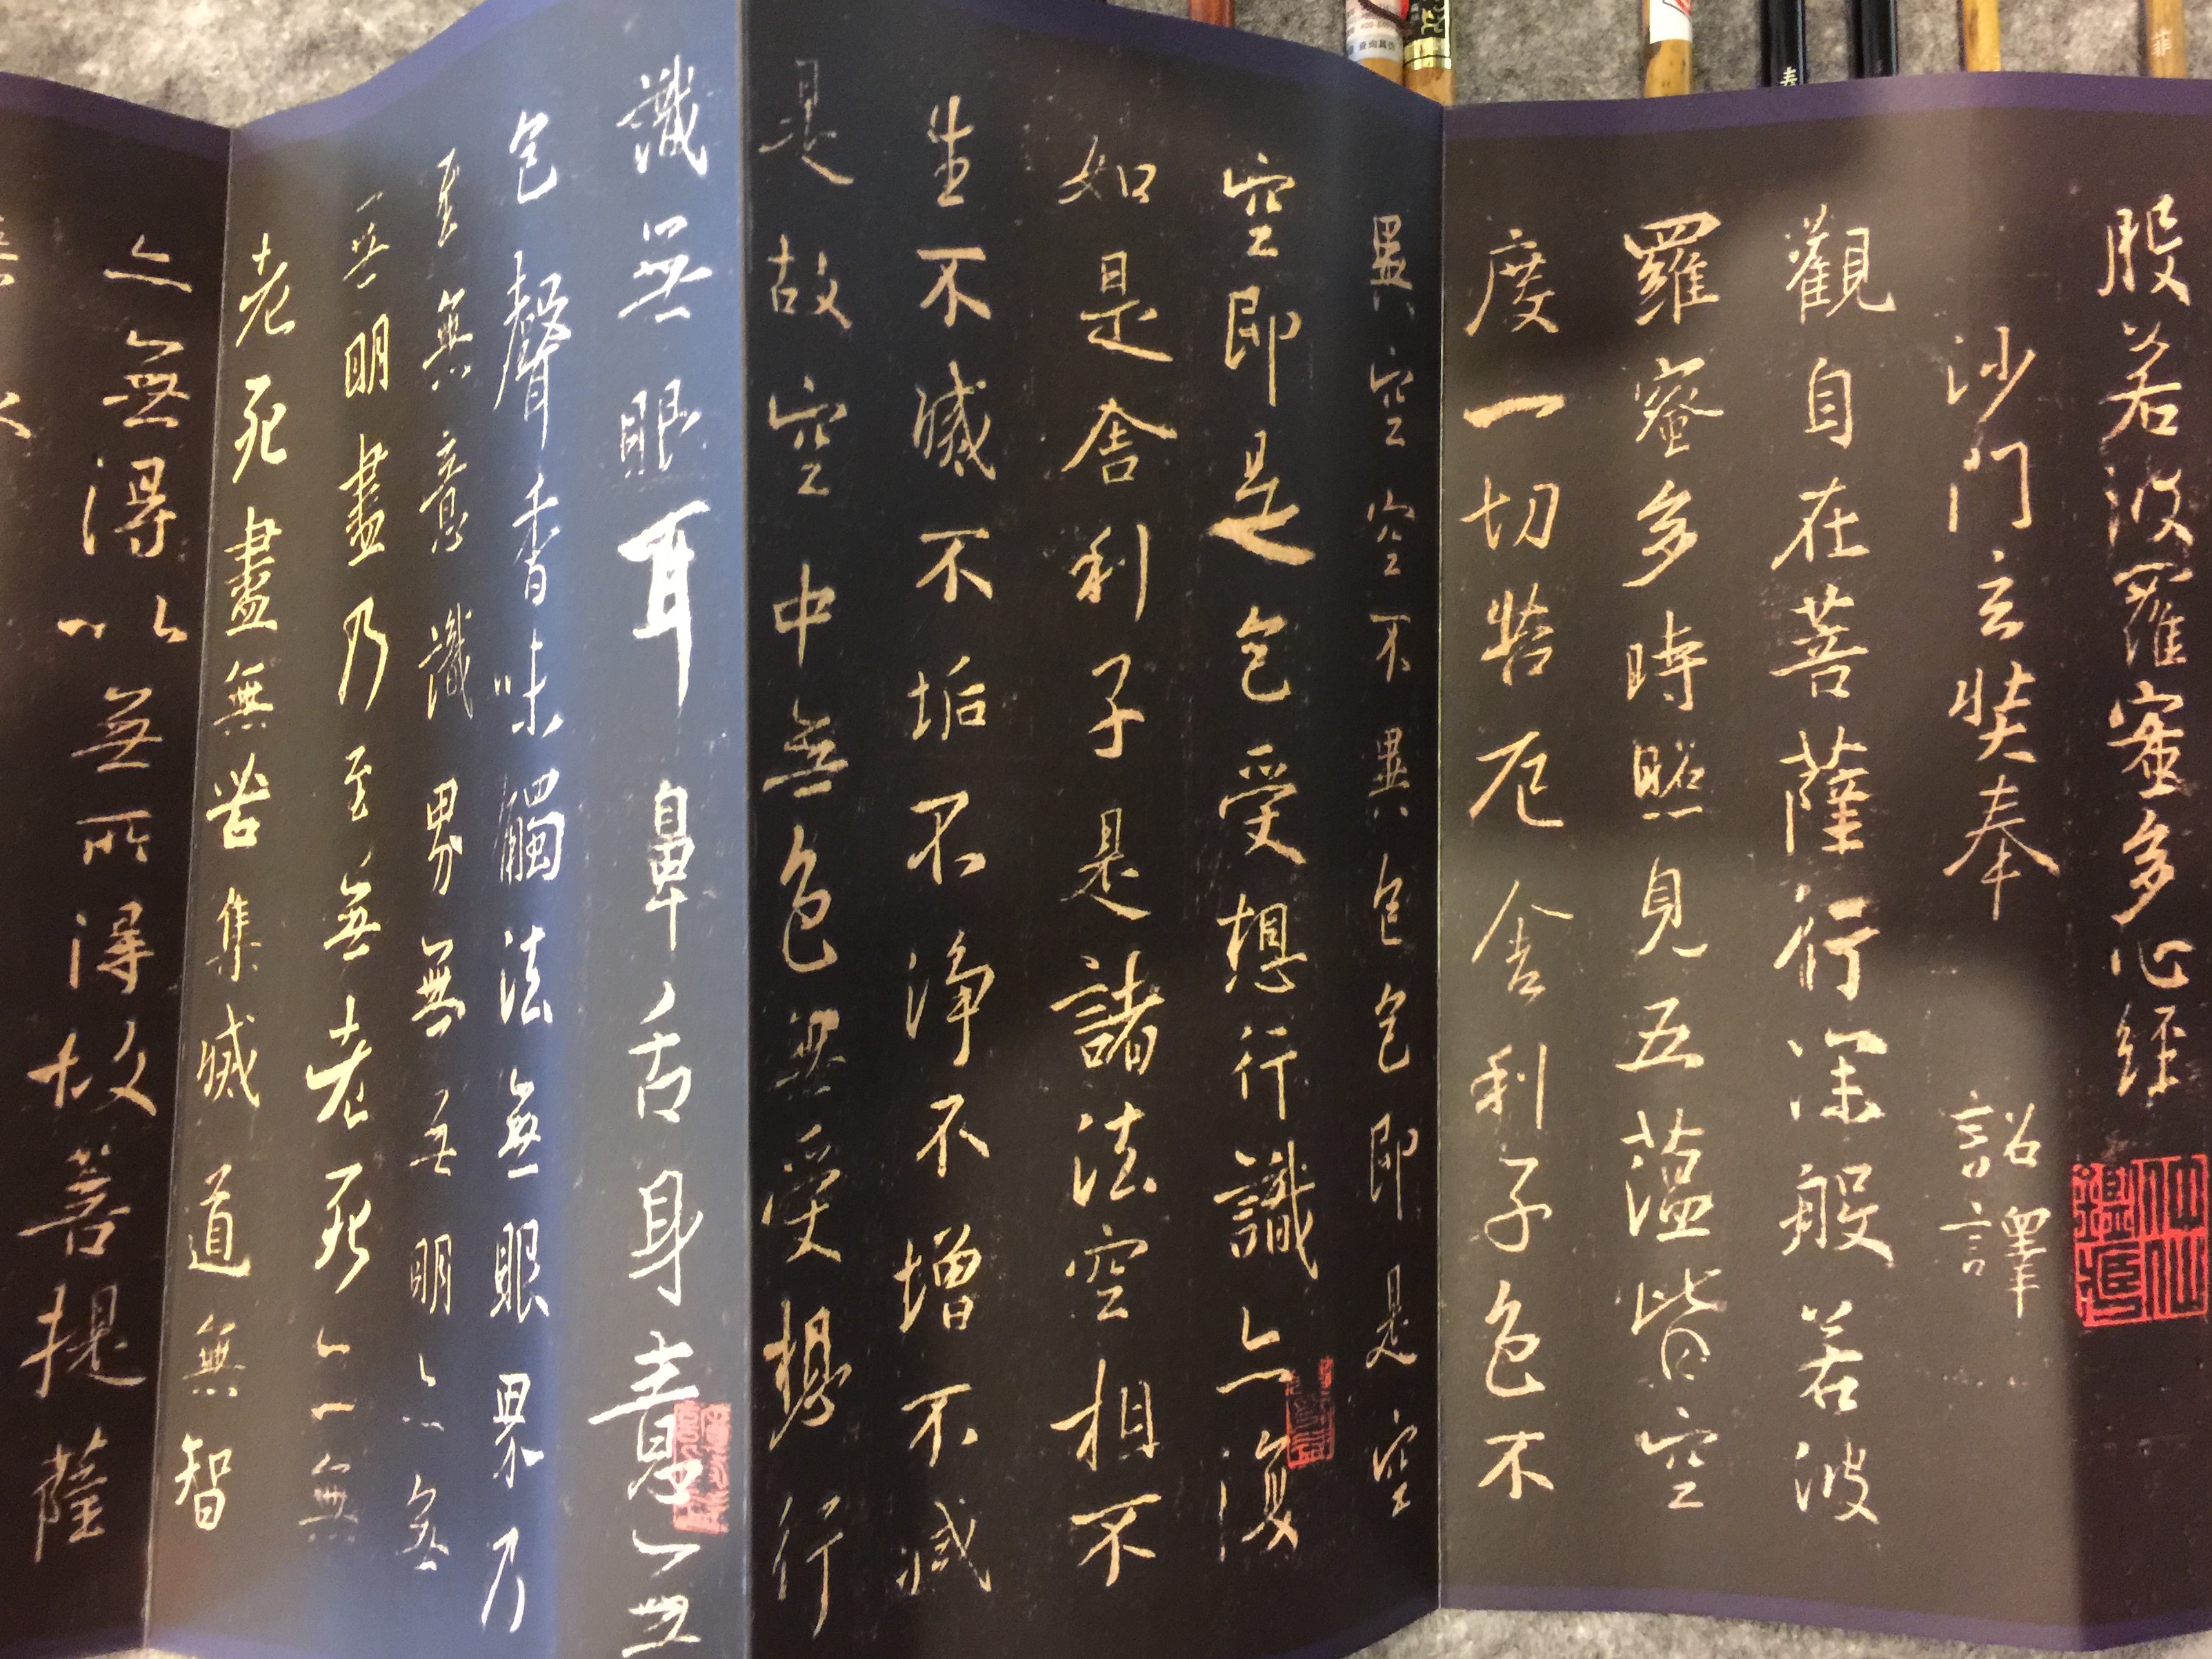 般若波羅蜜多心經
沙門玄奘奉 詔譯
觀自在菩薩行深般若波
羅蜜多時照見五蘊皆空
度一切苦厄舍利子色不
異空空不異色色即是空
空即是色受想行識亦復
如是舍利子是諸法空相不
生不滅不垢不淨不增不減
是故空中無色無受想行
識無眼耳鼻舌身意無
色聲香味觸法無眼界乃
至無意識界無無明亦無
無明盡乃至無老死亦無
老死盡無苦集滅道無智
亦無得以無所得故菩提薩